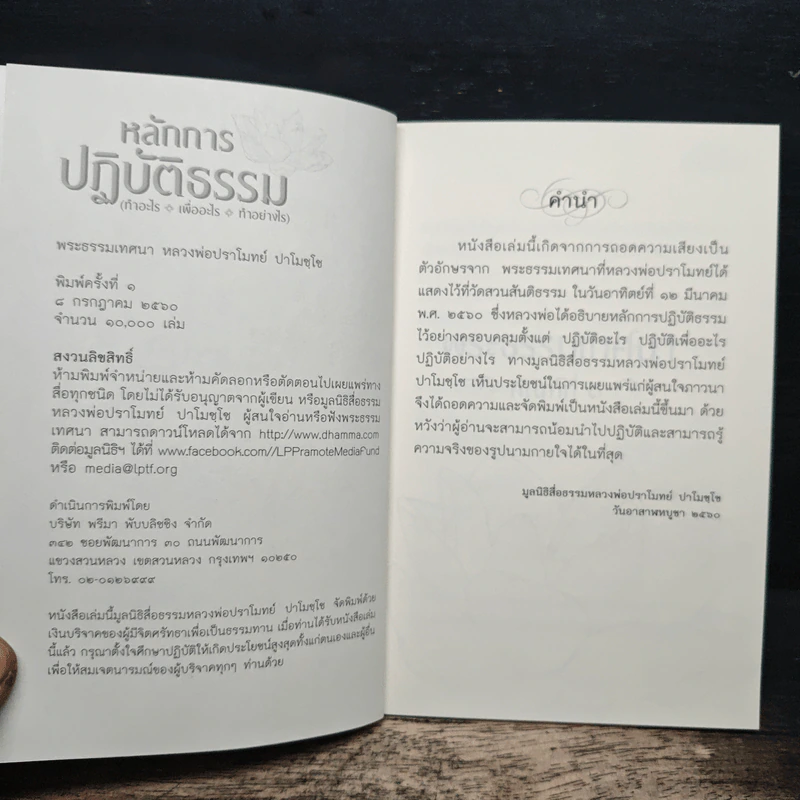 หลักการ
ปฏิบัติธรรม
(ทำอะไร ❖ เพื่ออะไร ❖ ทำอย่างไร)
พระธรรมเทศนา หลวงพ่อปราโมทย์ ปาโมชฺโช
พิมพ์ครั้งที่ ๑
๘ กรกฎาคม ๒๕๖๐
จำนวน ๑๐,๐๐๐ เล่ม
สงวนลิขสิทธิ์
ห้ามพิมพ์จำหน่ายและห้ามคัดลอกหรือตัดตอนไปเผยแพร่ทาง
สื่อทุกชนิด โดยไม่ได้รับอนุญาตจากผู้เขียน หรือมูลนิธิสื่อธรรม
หลวงพ่อปราโมทย์ ปาโมชฺโช ผู้สนใจอ่านหรือฟังพระธรรม
เทศนา สามารถดาวน์โหลดได้จาก http://www.dhamma.com
ติดต่อมูลนิธิฯ ได้ที่ www.facebook.com//LPPramoteMediaFund
หรือ media@lptf.org
ดำเนินการพิมพ์โดย
บริษัท พรีมา พับบลิชชิง จำกัด
๓๔๒ ซอยพัฒนาการ ๓๐ ถนนพัฒนาการ
แขวงสวนหลวง เขตสวนหลวง กรุงเทพฯ ๑๐๒๕๐
โทร. ๐๒-๐๑๒๖๙๙๙
หนังสือเล่มนี้มูลนิธิสื่อธรรมหลวงพ่อปราโมทย์ ปาโมชฺโช จัดพิมพ์ด้วย
เงินบริจาคของผู้มีจิตศรัทธาเพื่อเป็นธรรมทาน เมื่อท่านได้รับหนังสือเล่ม
นี้แล้ว กรุณาตั้งใจศึกษาปฏิบัติให้เกิดประโยชน์สูงสุดทั้งแก่ตนเองและผู้อื่น
เพื่อให้สมเจตนารมณ์ของผู้บริจาคทุกๆ ท่านด้วย
คำนำ
หนังสือเล่มนี้เกิดจากการถอดความเสียงเป็น
ตัวอักษรจาก พระธรรมเทศนาที่หลวงพ่อปราโมทย์ได้
แสดงไว้ที่วัดสวนสันติธรรม ในวันอาทิตย์ที่ ๑๒ มีนาคม
พ.ศ. ๒๕๖๐ ซึ่งหลวงพ่อได้อธิบายหลักการปฏิบัติธรรม
ไว้อย่างครอบคลุมตั้งแต่ ปฏิบัติอะไร ปฏิบัติเพื่ออะไร
ปฏิบัติอย่างไร ทางมูลนิธิสื่อธรรมหลวงพ่อปราโมทย์
ปาโมชฺโช เห็นประโยชน์ในการเผยแพร่แก่ผู้สนใจภาวนา
จึงได้ถอดความและจัดพิมพ์เป็นหนังสือเล่มนี้ขึ้นมา ด้วย
หวังว่าผู้อ่านจะสามารถน้อมนำไปปฏิบัติและสามารถรู้
ความจริงของรูปนามกายใจได้ในที่สุด
มูลนิธิสื่อธรรมหลวงพ่อปราโมทย์ ปาโมชฺโช
วันอาสาฬหบูชา ๒๕๖๐